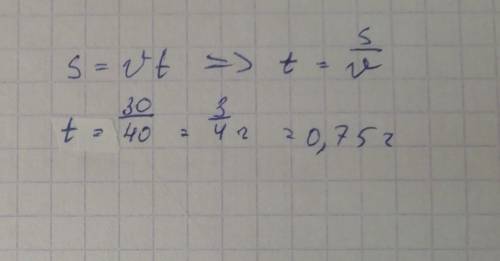 s = vt => t = s/v
t = 30/40 = 3/4 г = 0,75 г